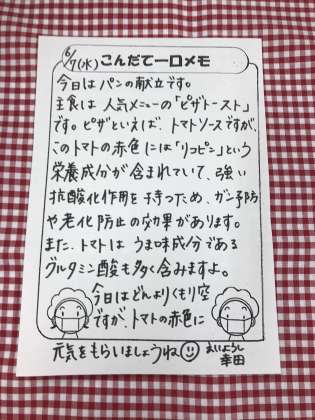 6/7(水) こんだて一口メモ
今日はパンの献立です。
主食は人気メニューの「ピザトースト」
です。ピザといえば、トマトソースですが、
このトマトの赤色には「リコピン」という
栄養成分が含まれていて、強い
抗酸化作用を持つため、ガン予防
や老化防止の効果があります。
また、トマトは うま味成分である
グルタミン酸も多く含みますよ。
今日はどんよりくもり空
ですが、トマトの赤色に
元気をもらいましょうね
えいようし
幸田